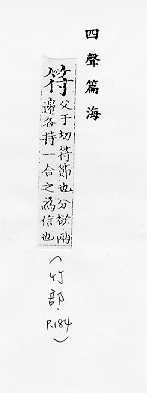 四聲篇海
符父于切符節也分如兩
邊各持一合之為信也
(竹部.
P.184)